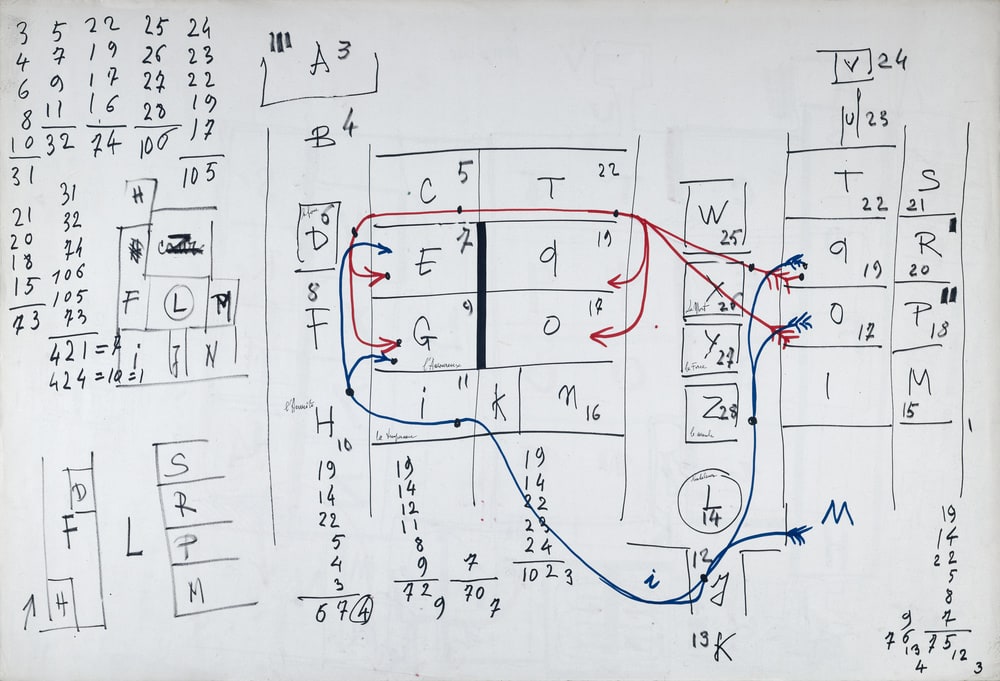 3 5 22 25 24
4 7 19 26 23
6 9 17 27 22
8 11 16 28 19
10 32 74 106 17
31 105
31
21 32
20 74
18 106
15 105
73 73
421 =
424 = 10 = 1
H
F L M
i J N
D
F
H
L
S
R
P
M
A 3
B 4
C 5 T 22
D 6
E 7 q 19
8
F
G 9 O 17
H 10
i 11 K n 16
19
14
22
5
4
3
67 4
19
14
12
11
8
9
72 9
7
70 7
19
14
22
23
24
102 3
V 24
U 23
W 25
X 26
Y 27
Z 28
L 14
12 J
13 K
i
M
T 22 S 21
q 19 R 20
O 17 P 18
I M 15
19
14
22
5
8
9 7
76 13 75 12
4 3